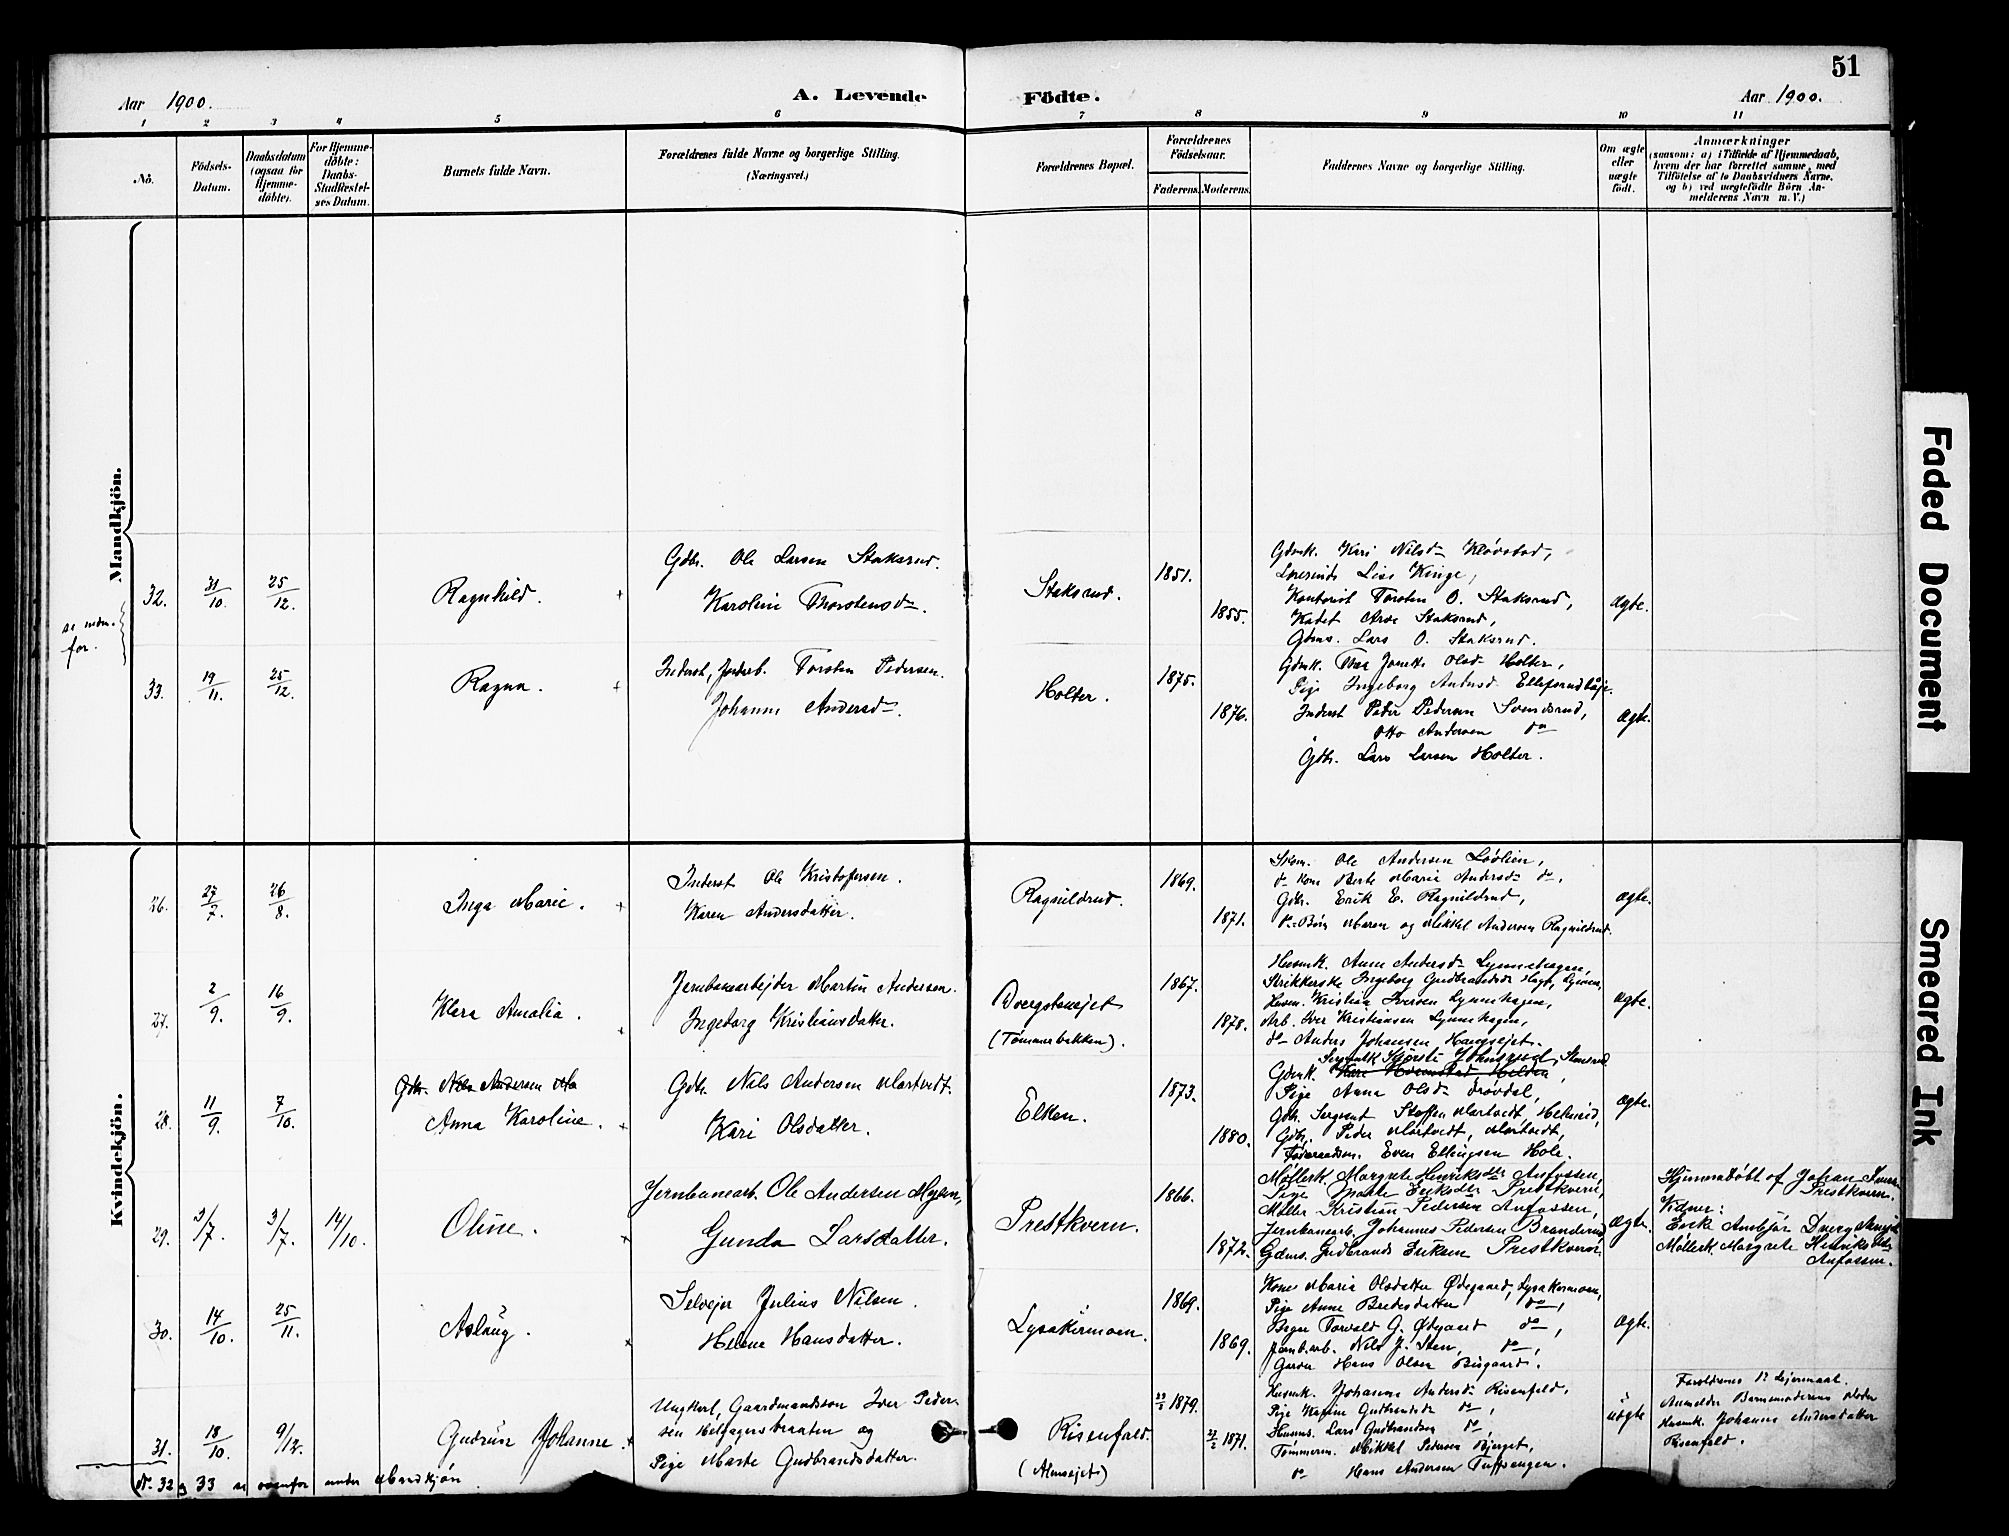 51
Aar 1900.
A. Levende Födte.
Aar 1900.
1 2 3 4 5 6 7 8 9 10 11
No.
Födsels-Datum.
Daabsdatum (ogsaa for Hjemme-döbte).
For Hjemme-döbte: Daabs-Stadfæstel-ses Datum.
Barnets fulde Navn.
Forældrenes fulde Navne og borgerlige Stilling.
(Næringsvei.)
Forældrenes Bopæl.
Forældrenes Födselsaar.
Faderens. Moderens.
Faddernes Navne og borgerlige Stilling.
Om ægte eller uægte født.
Anmærkninger
(saasom: a) i Tilfælde af Hjemmedaab,
hvem der har forrettet samme, med
Tilföielse af to Daabsvidners Navne,
og b) ved uægtefödte Börn An-
melderens Navn m. V.)
Mandkjön.
32. 31/10. 25/12. Ragnhild.
Gdbr. Ole Larsen Staksrud.
Karoline Thorstensd.
Staksrud. 1851. 1855.
Gdmk. Kari Nilsd. Kløvstad,
Lise Kinge,
Kontorist Torsten O. Staksrud,
Kadet Arne Staksrud,
Gdms. Lars O. Staksrud.
Ægte.
33. 19/11. 25/12. Ragna.
Inderst, Jordarb. Torsten Pedersen.
Johanne Andersd.
Holter. 1875. 1876.
Gdmk. Thea Olsd. Holter,
Pige Ingeborg
Inderst Peder Pedersen Svendsrud,
Otto Andersen do
Gdbr. Lars Larsen Holter.
Ægte.
Kvindekjön.
26. 27/7. 26/8. Inga Marie.
Inderst Ole Kristofersen.
Karen Andersdatter.
Ragnildrud. 1869. 1871.
Ole Andersen Løvlien,
do Kone Berte Maria Andersd. do,
Gdbr. Erik E. Ragnildrud,
do Børn Maren og Mikkel Andersen Ragnildrud.
Ægte.
27. 2/9. 16/9. Klara Amalia.
Jernbanearbejder Martin Andersen.
Ingeborg Kristiansdatter.
Dvergstenejet
(Tømmerbakken).
1867. 1878.
Husmk. Anne Andersd. Lynnehagen,
Strikkerske Ingeborg Gudbrandsd.
Husm. Kristian Iversen Lynnehagen,
Arb. Iver Kristiansen Lynnehagen,
do Anders Johansen Haugsejet.
Ægte.
28. 11/9. 7/10.
Gdbr. Nils Andersen Ma
Anna Karoline.
Gdbr. Nils Andersen Martvedt.
Kari Olsdatter.
Elken. 1873. 1880.
Gdmk.
Pige Anna Olsd. Drøvdal,
Gdbr. Sergeant Steffen Martvedt,
Gdbr. Peder Martvedt, Martvedt,
Føderaadsm. Even Ellingsen Hole.
Ægte.
29. 3/7. 3/7. 14/10. Oline.
Jernbanearb. Ole Andersen Myhren,
Gunda Larsdatter.
Prestkvern. 1866. 1872.
Møllerk. Margrete Henriksdtr Anfossen,
Pige Marte Eriksdtr Prestkvern,
Møller Kristian Pedersen Anfossen,
Jernbanearb. Johannes Pedersen Branderud,
Gdms. Gudbrand Eriksen Prestkvern.
Ægte.
Hjemmedøbt af Johan
Prestkvern.
Vidner:
Erik
Møllerk. Margrete Henriksdtr
Anfossen.
30. 14/10. 25/11. Aslaug.
Selvejer Julius Nilsen.
Helene Hansdatter.
Lysakermoen. 1869. 1869.
Kone Maria Olsdatter Ødegaard, Lysakermoen,
Pige Anne Bredesdatter do,
Torvald G. Ødegaard do,
Jernb.arb. Nils J. Sten, do,
Hans Olsen Bisgaard.
Ægte.
31. 18/10. 9/12. Gudrun Johanne.
Ungkarl, Gaardmandssøn Iver Peder-
sen Helgagersbraaten og
Pige Marte Gudbrandsdatter.
Risenfald.
1879. 1871.
Husmk. Johanne Andersd. Risenfald,
Pige Karine Gudbrandsd. do,
Husms. Lars Gudbrandsen do,
Tømmerm. Mikkel Pedersen Bjerget,
do Hans Andersen Tuffsengen.
uægte
Forældrenes 1ste Lejermaal.
Anmelder Barnemoderens Moder
Husmk. Johanne Andersdatter
Risenfald.
N. 32 og 33 se ovenfor under Mandkjøn
Faded Document
Smeared Ink